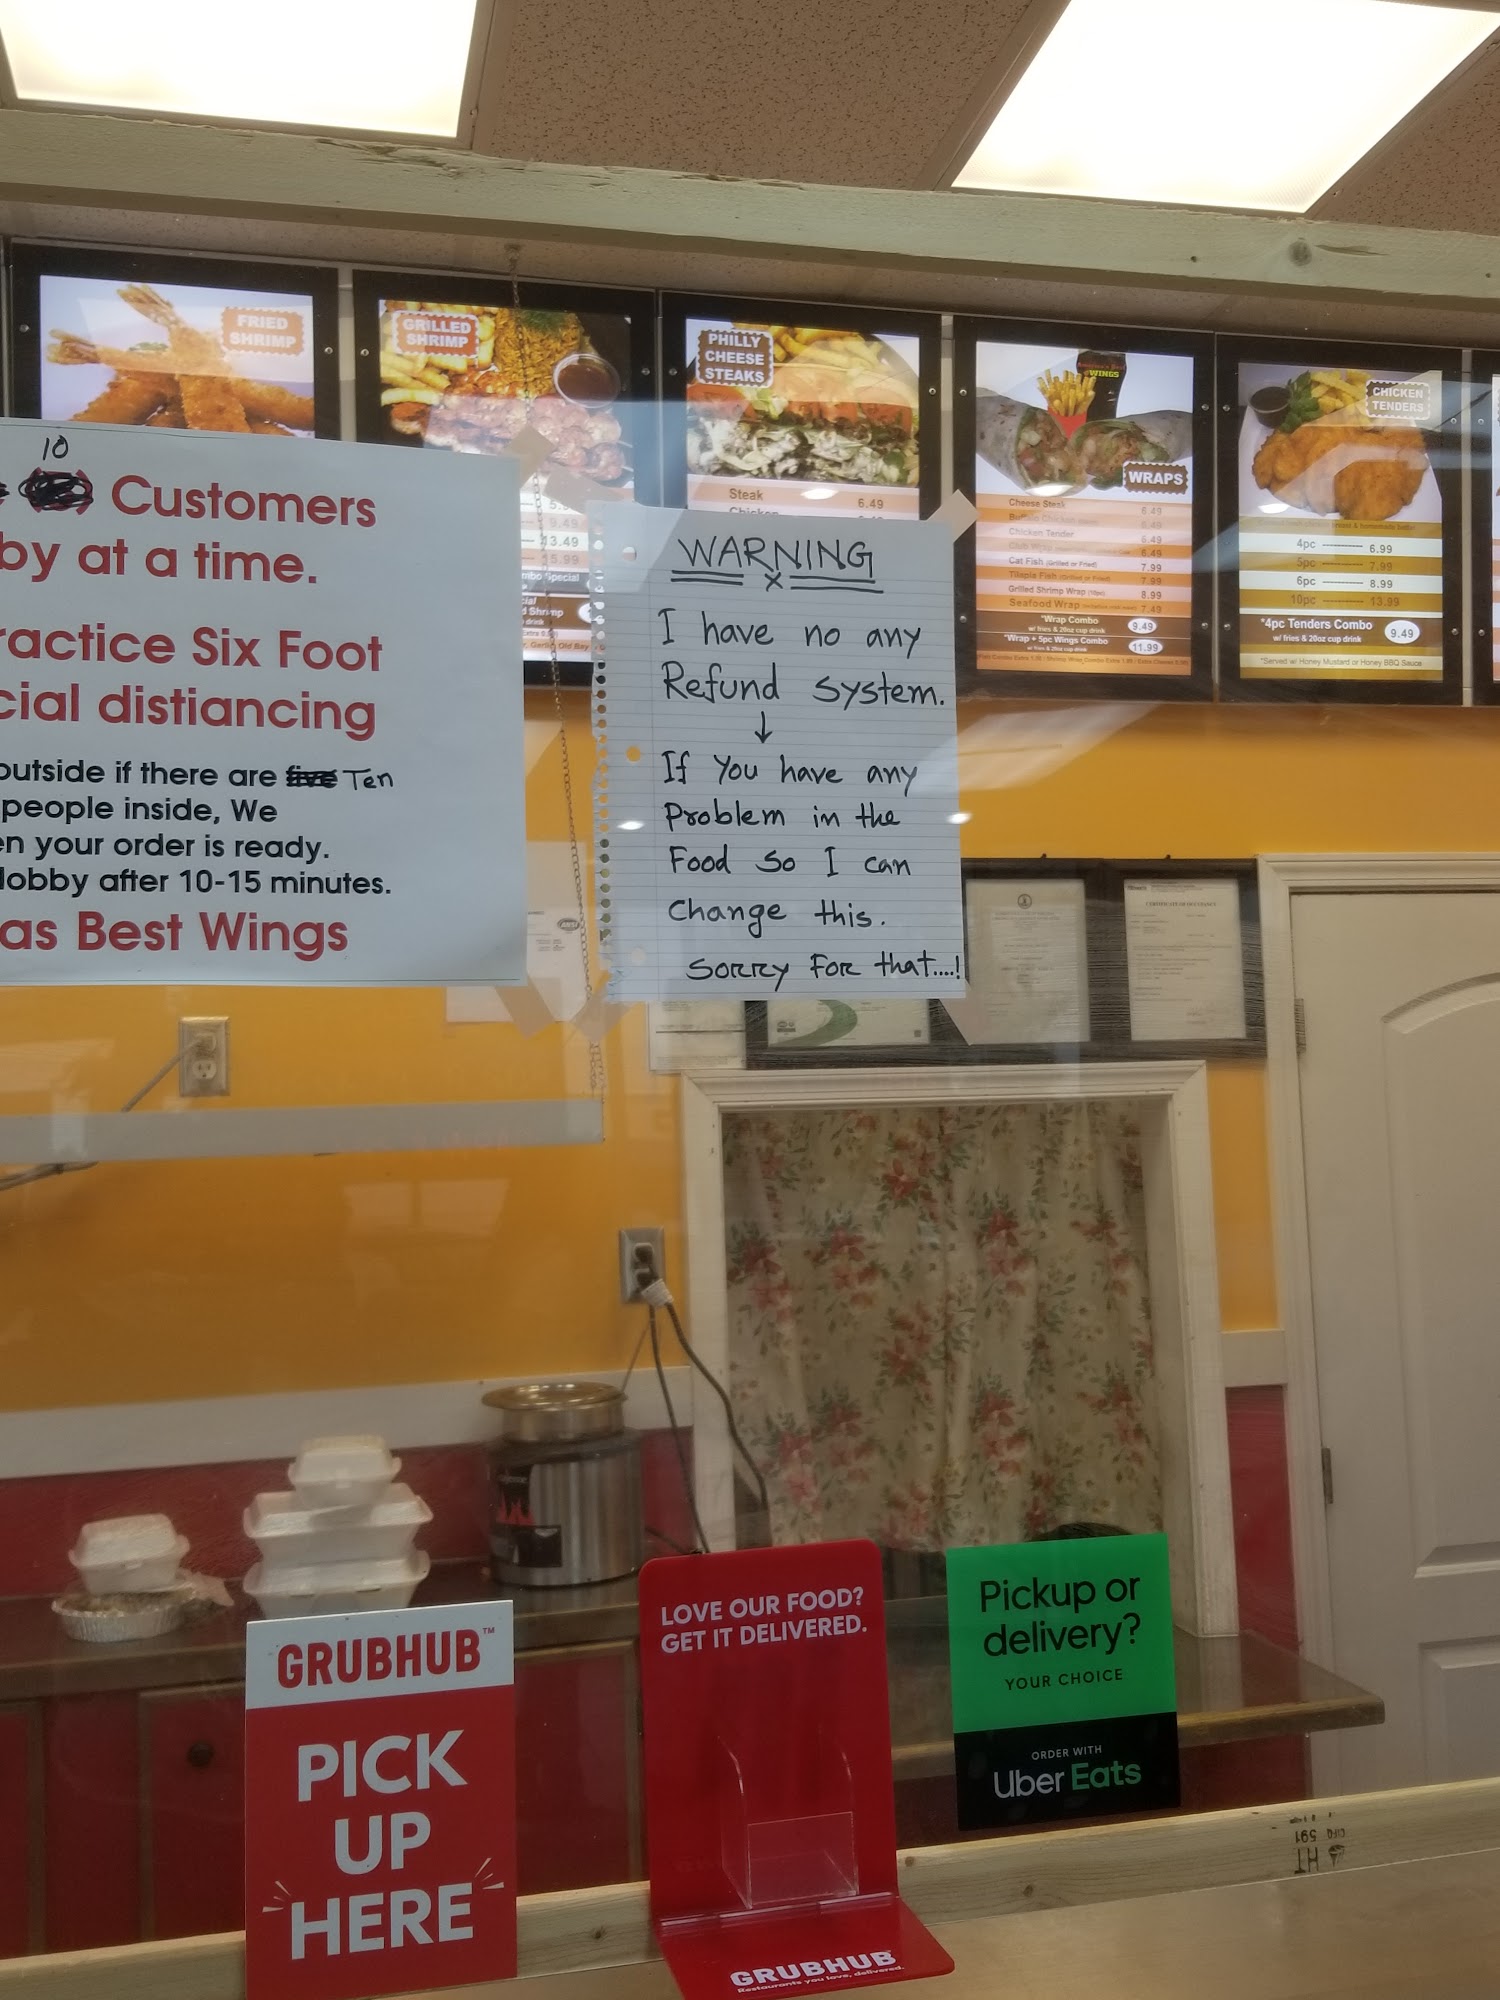 FRIED
SHRIMP
GRILLED
SHRIMP
PHILLY
CHEESE
STEAKS
Steak 6.49
Chicken
WINGS
WRAPS
Cheese Steak 6.49
Buffalo Chicken 6.49
Chicken Tender 6.49
6.49
Cat Fish (Grilled or Fried) 7.99
Tilapia Fish (Grilled or Fried) 7.99
Grilled Shrimp Wrap (10pc) 8.99
Seafood Wrap 7.49
*Wrap Combo 9.49
w/ fries & 20oz cup drink
*Wrap + 5pc Wings Combo 11.99
w/ fries & 20oz cup drink
CHICKEN
TENDERS
4pc 6.99
5pc 7.99
6pc 8.99
10pc 13.99
*4pc Tenders Combo 9.49
w/ fries & 20oz cup drink
*Served w/ Honey Mustard or Honey BBQ Sauce
9.49
13.49
15.99
10
Customers
by at a time.
ractice Six Foot
cial distiancing
outside if there are five Ten
people inside, We
en your order is ready.
lobby after 10-15 minutes.
as Best Wings
WARNING
x
I have no any
Refund system.
↓
If you have any
Problem in the
Food so I can
change this.
Sorry For that....!
CERTIFICATE OF OCCUPANCY
GRUBHUB™
PICK
UP
HERE
LOVE OUR FOOD?
GET IT DELIVERED.
GRUBHUB
Restaurants you love, delivered.
Pickup or
delivery?
YOUR CHOICE
ORDER WITH
Uber Eats
591
HT